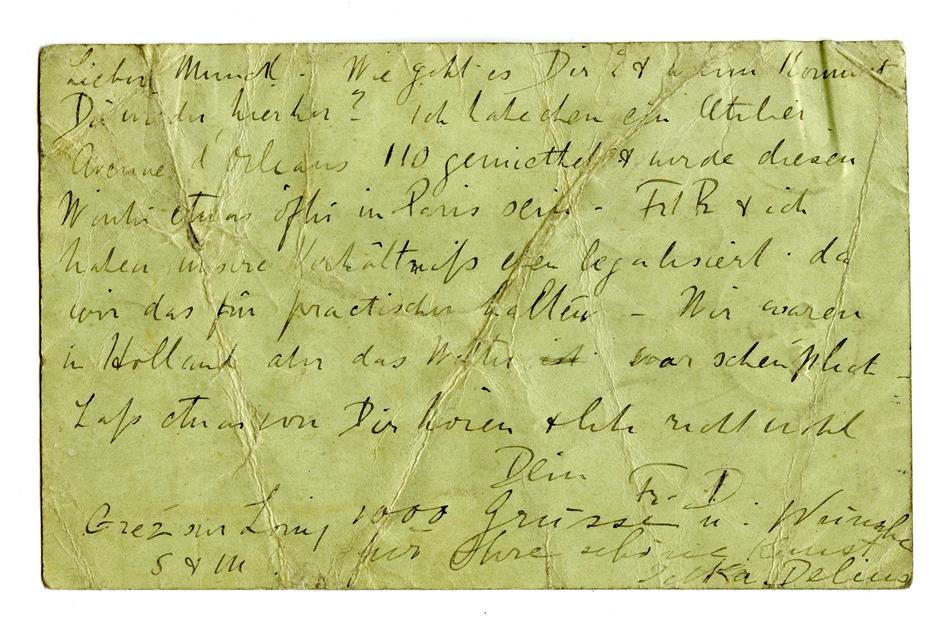 Lieber Munch - Wie geht es Dir? & wann kommst
Du wieder hierher? Ich habe eben ein Atelier
Avenue d'Orleans 110 gemiethet & werde diesen
Winter etwas öfter in Paris sein - Frl R & ich
haben unsere Verhältniss eben legalisiert - da
wir das für practischer halten - Wir waren
in Holland aber das Wetter war scheusslich -
Lass etwas von Dir hören & lebe recht wohl
Dein
Fr. D
Grez sur Loing 1000 Grüsse u. Wünsche
S & M für Ihre schöne Kunst
Jelka Delius